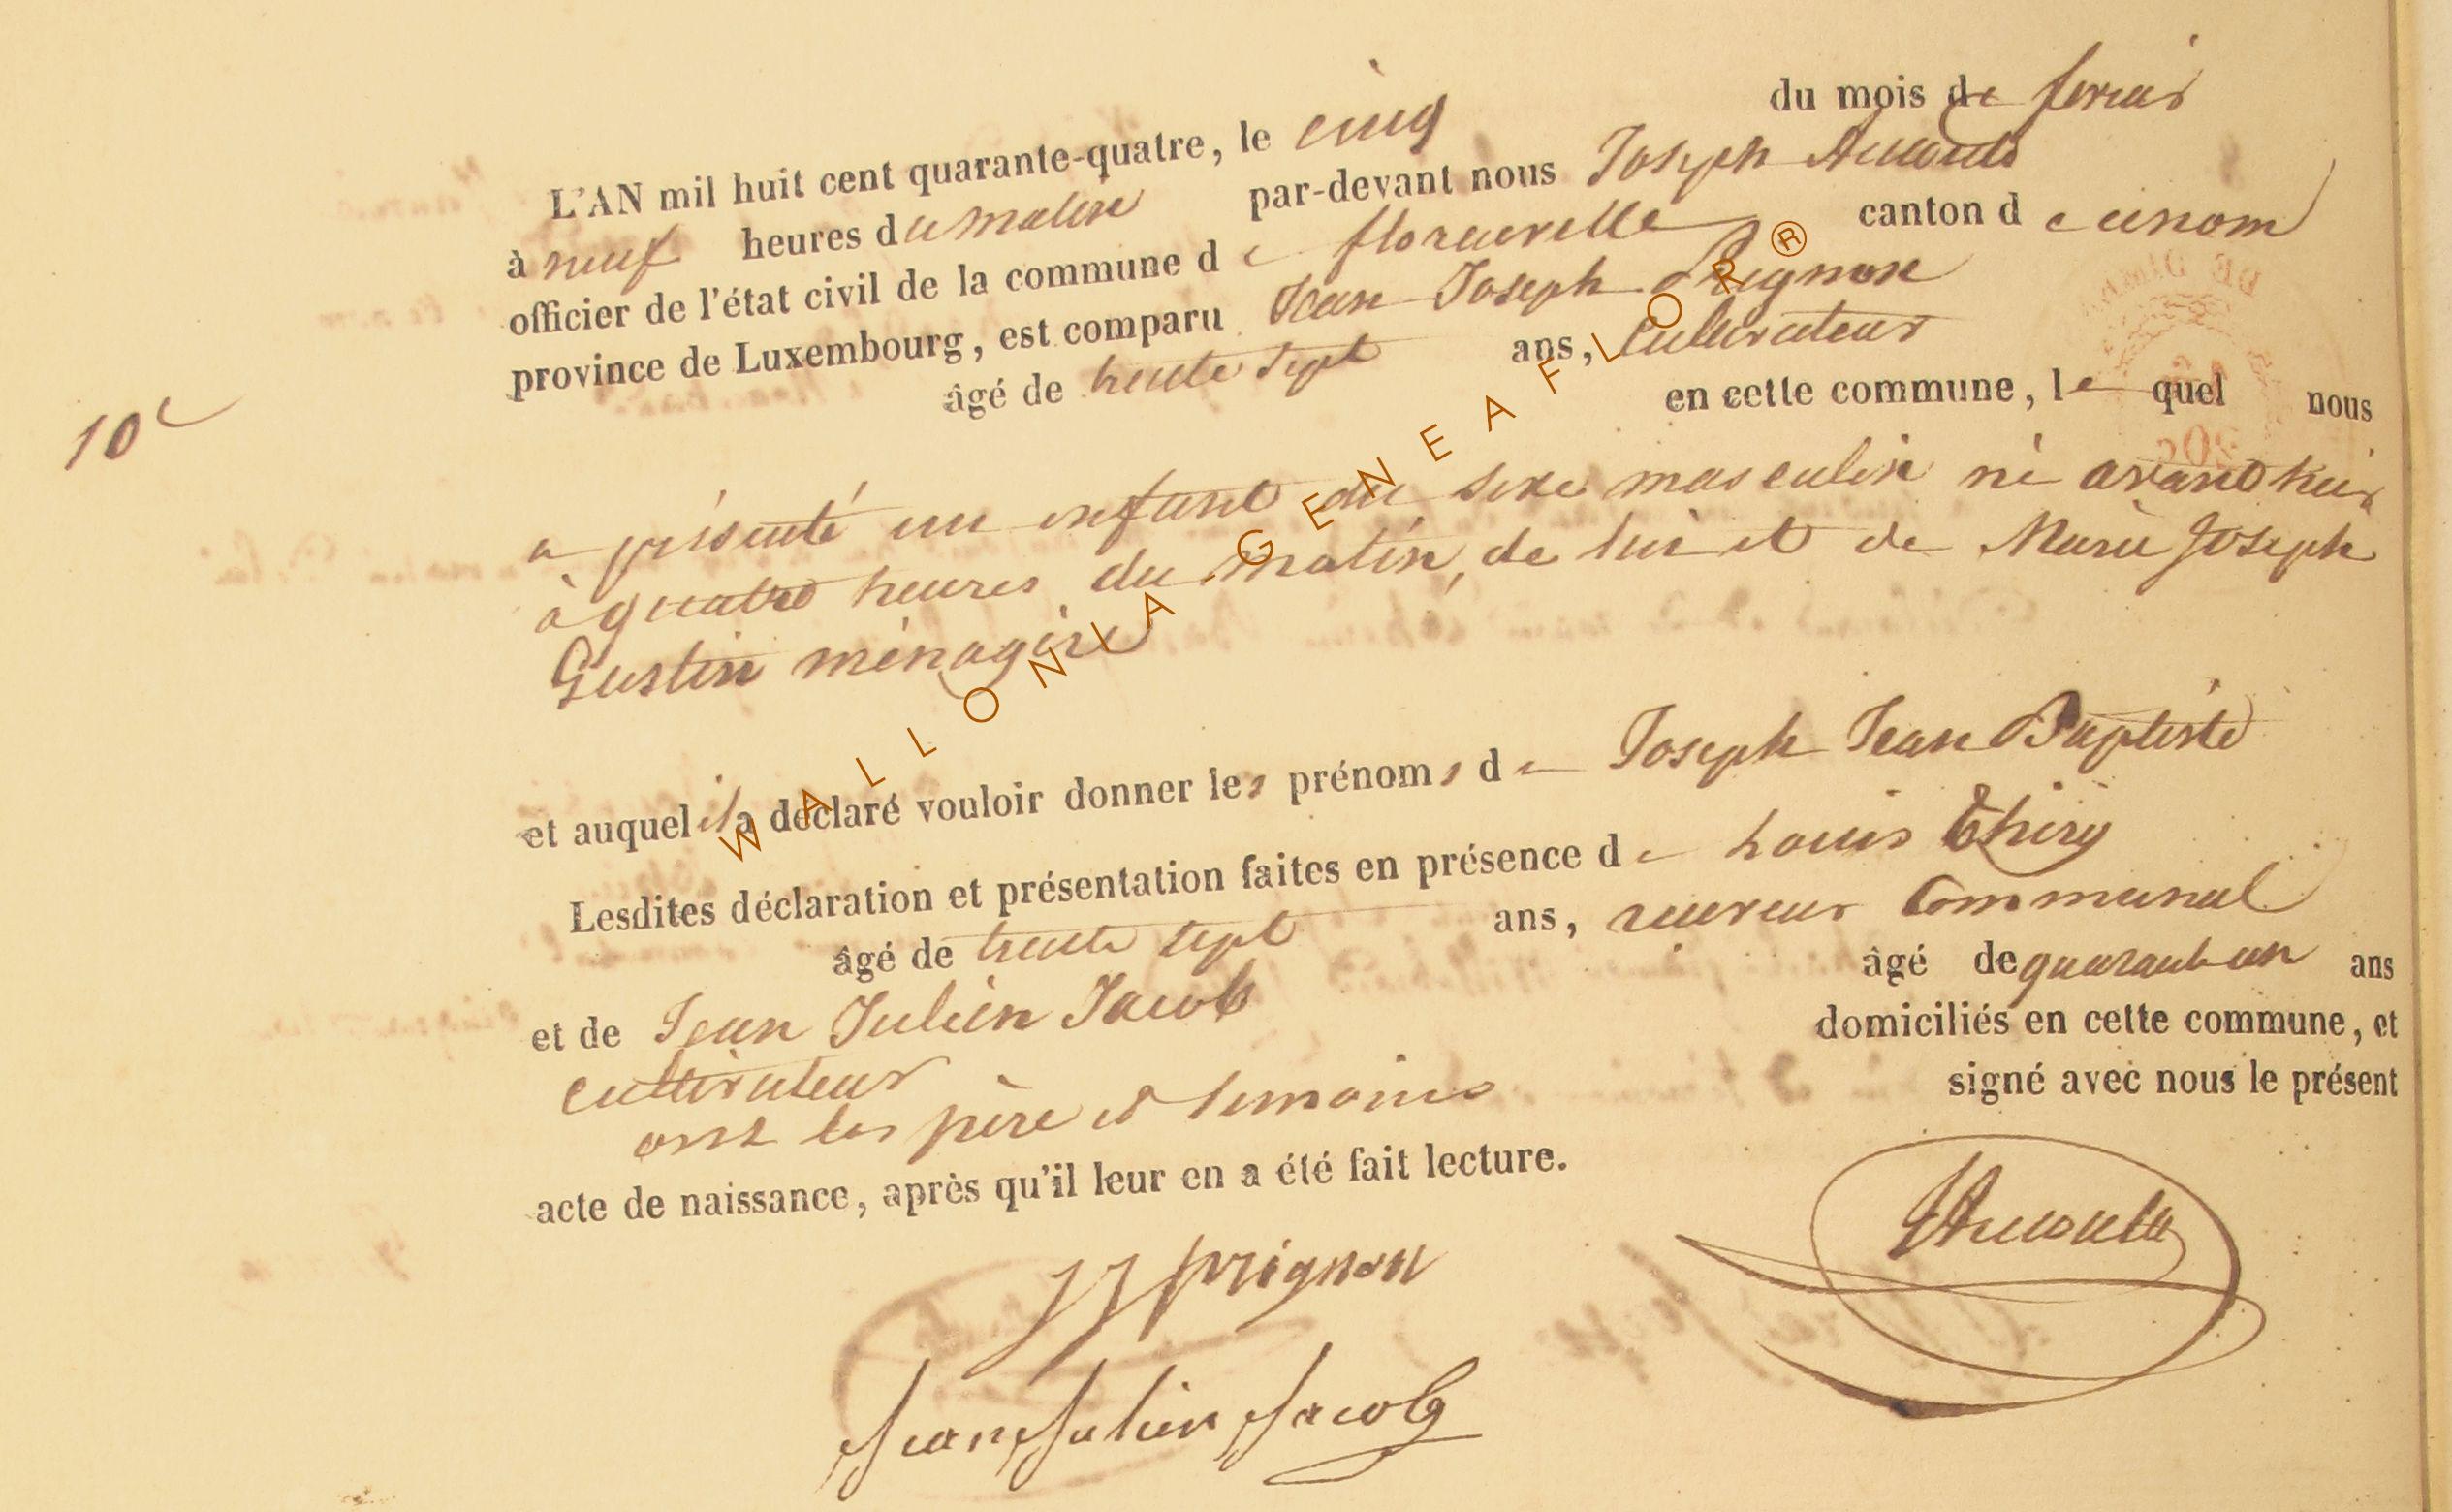 L'AN mil huit cent quarante-quatre, le cinq du mois de fevrier
à neuf heures du matin par-devant nous Joseph
officier de l'état civil de la commune de florenville canton de ce nom
province de Luxembourg, est comparu Jean Joseph Prignon
âgé de trente sept ans, Cultivateur
en cette commune, lequel nous
10e
a présenté un enfant du sexe masculin né avant hier
à quatre heures du matin, de lui et de Marie Joseph
Gustin ménagère
et auquel il a déclaré vouloir donner les prénoms de Joseph Jean Baptiste
Lesdites déclaration et présentation faites en présence de Louis Thiry
âgé de trente sept ans, receveur Communal
et de Jean Julien Jacob âgé de quarante un ans
cultivateur domiciliés en cette commune, et
ont les père et temoins signé avec nous le présent
acte de naissance, après qu'il leur en a été fait lecture.
JJ prignon
Jean Julien Jacob
WALLONIA GENEAFLOR®